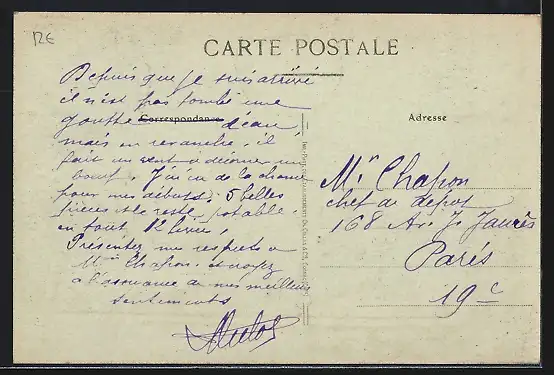 12€
CARTE POSTALE
Depuis que je suis arrivé
il n'est pas tombé une
goutte Correspondance d'eau,
mais en revanche, il
fait un vent a décorner un
bœuf. J'ai eu de la chance
pour mes débuts. 5 belles
pièces et le reste potable
en tout 12
Présentez mes respects a
Mme Chapon, et croyez
a l'assurance de mes meilleurs
sentiments
Adresse
Mr Chapon
chef de dépot
168 Av. J. Jaurès
Paris
19e